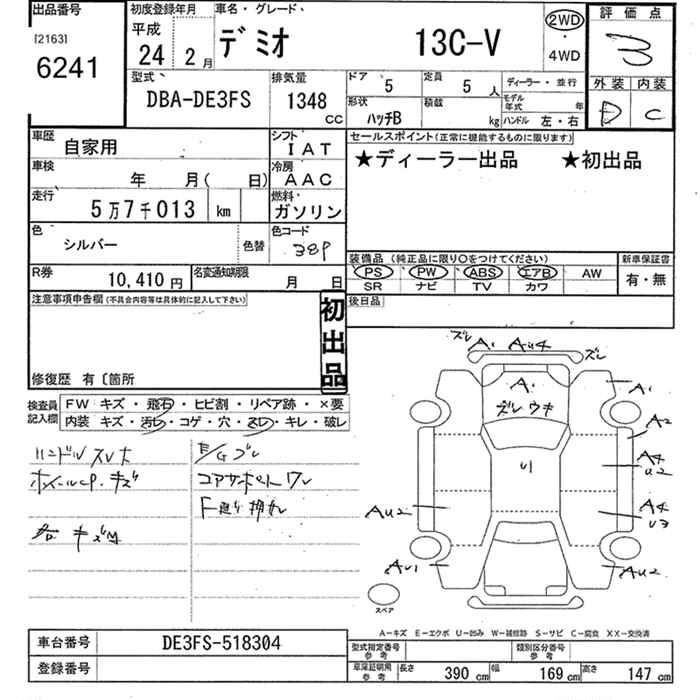 出品番号
[2163]
6241
初度登録年月
平成
24年 2月
車名・グレード
デミオ 13C-V
2WD
4WD
評価点
3
外装 内装
D C
型式
DBA-DE3FS
排気量
1348 CC
ドア 5
定員 5人
ディーラー・並行
形状 ハッチB
積載 kg
モデル年式 年
ハンドル 左・右
車歴 自家用
シフト IAT
車検 年 月( 日)
冷房 AAC
走行 5万7千013 km
燃料 ガソリン
色 シルバー 色替
色コード 38P
R券 10,410円
名変通知期限 月 日
セールスポイント(正常に機能するものに限ります)
★ディーラー出品 ★初出品
装備品 (純正品に限り○をつけてください)
PS PW ABS エアB AW
SR ナビ TV カワ
新車保証書
有・無
後日品
注意事項申告欄(不具合内容等は具体的に記入して下さい)
初出品
修復歴 有〔箇所
検査員記入欄
FW キズ・飛石・ヒビ割・リペア跡・×要
内装 キズ・汚れ・コゲ・穴・スレ・キレ・破レ
ハンドル スレ大
ホイールCP.キズ
E/Gブレ
コアサポート ワレ
ズレ A1 AU4 ズレ
A1
A1
ズレ ウキ
A2
U1
A4
U2
AU2
A4
U3
AU1
AU2
スペア
A－キズ E－エクボ U－凹み W－補修跡 S－サビ C－腐食 XX－交換済
車台番号 DE3FS-518304
登録番号
型式指定番号 参考
類別区分番号 参考
車庫証明用 参考
長さ 390 cm 幅 169 cm 高さ 147 cm